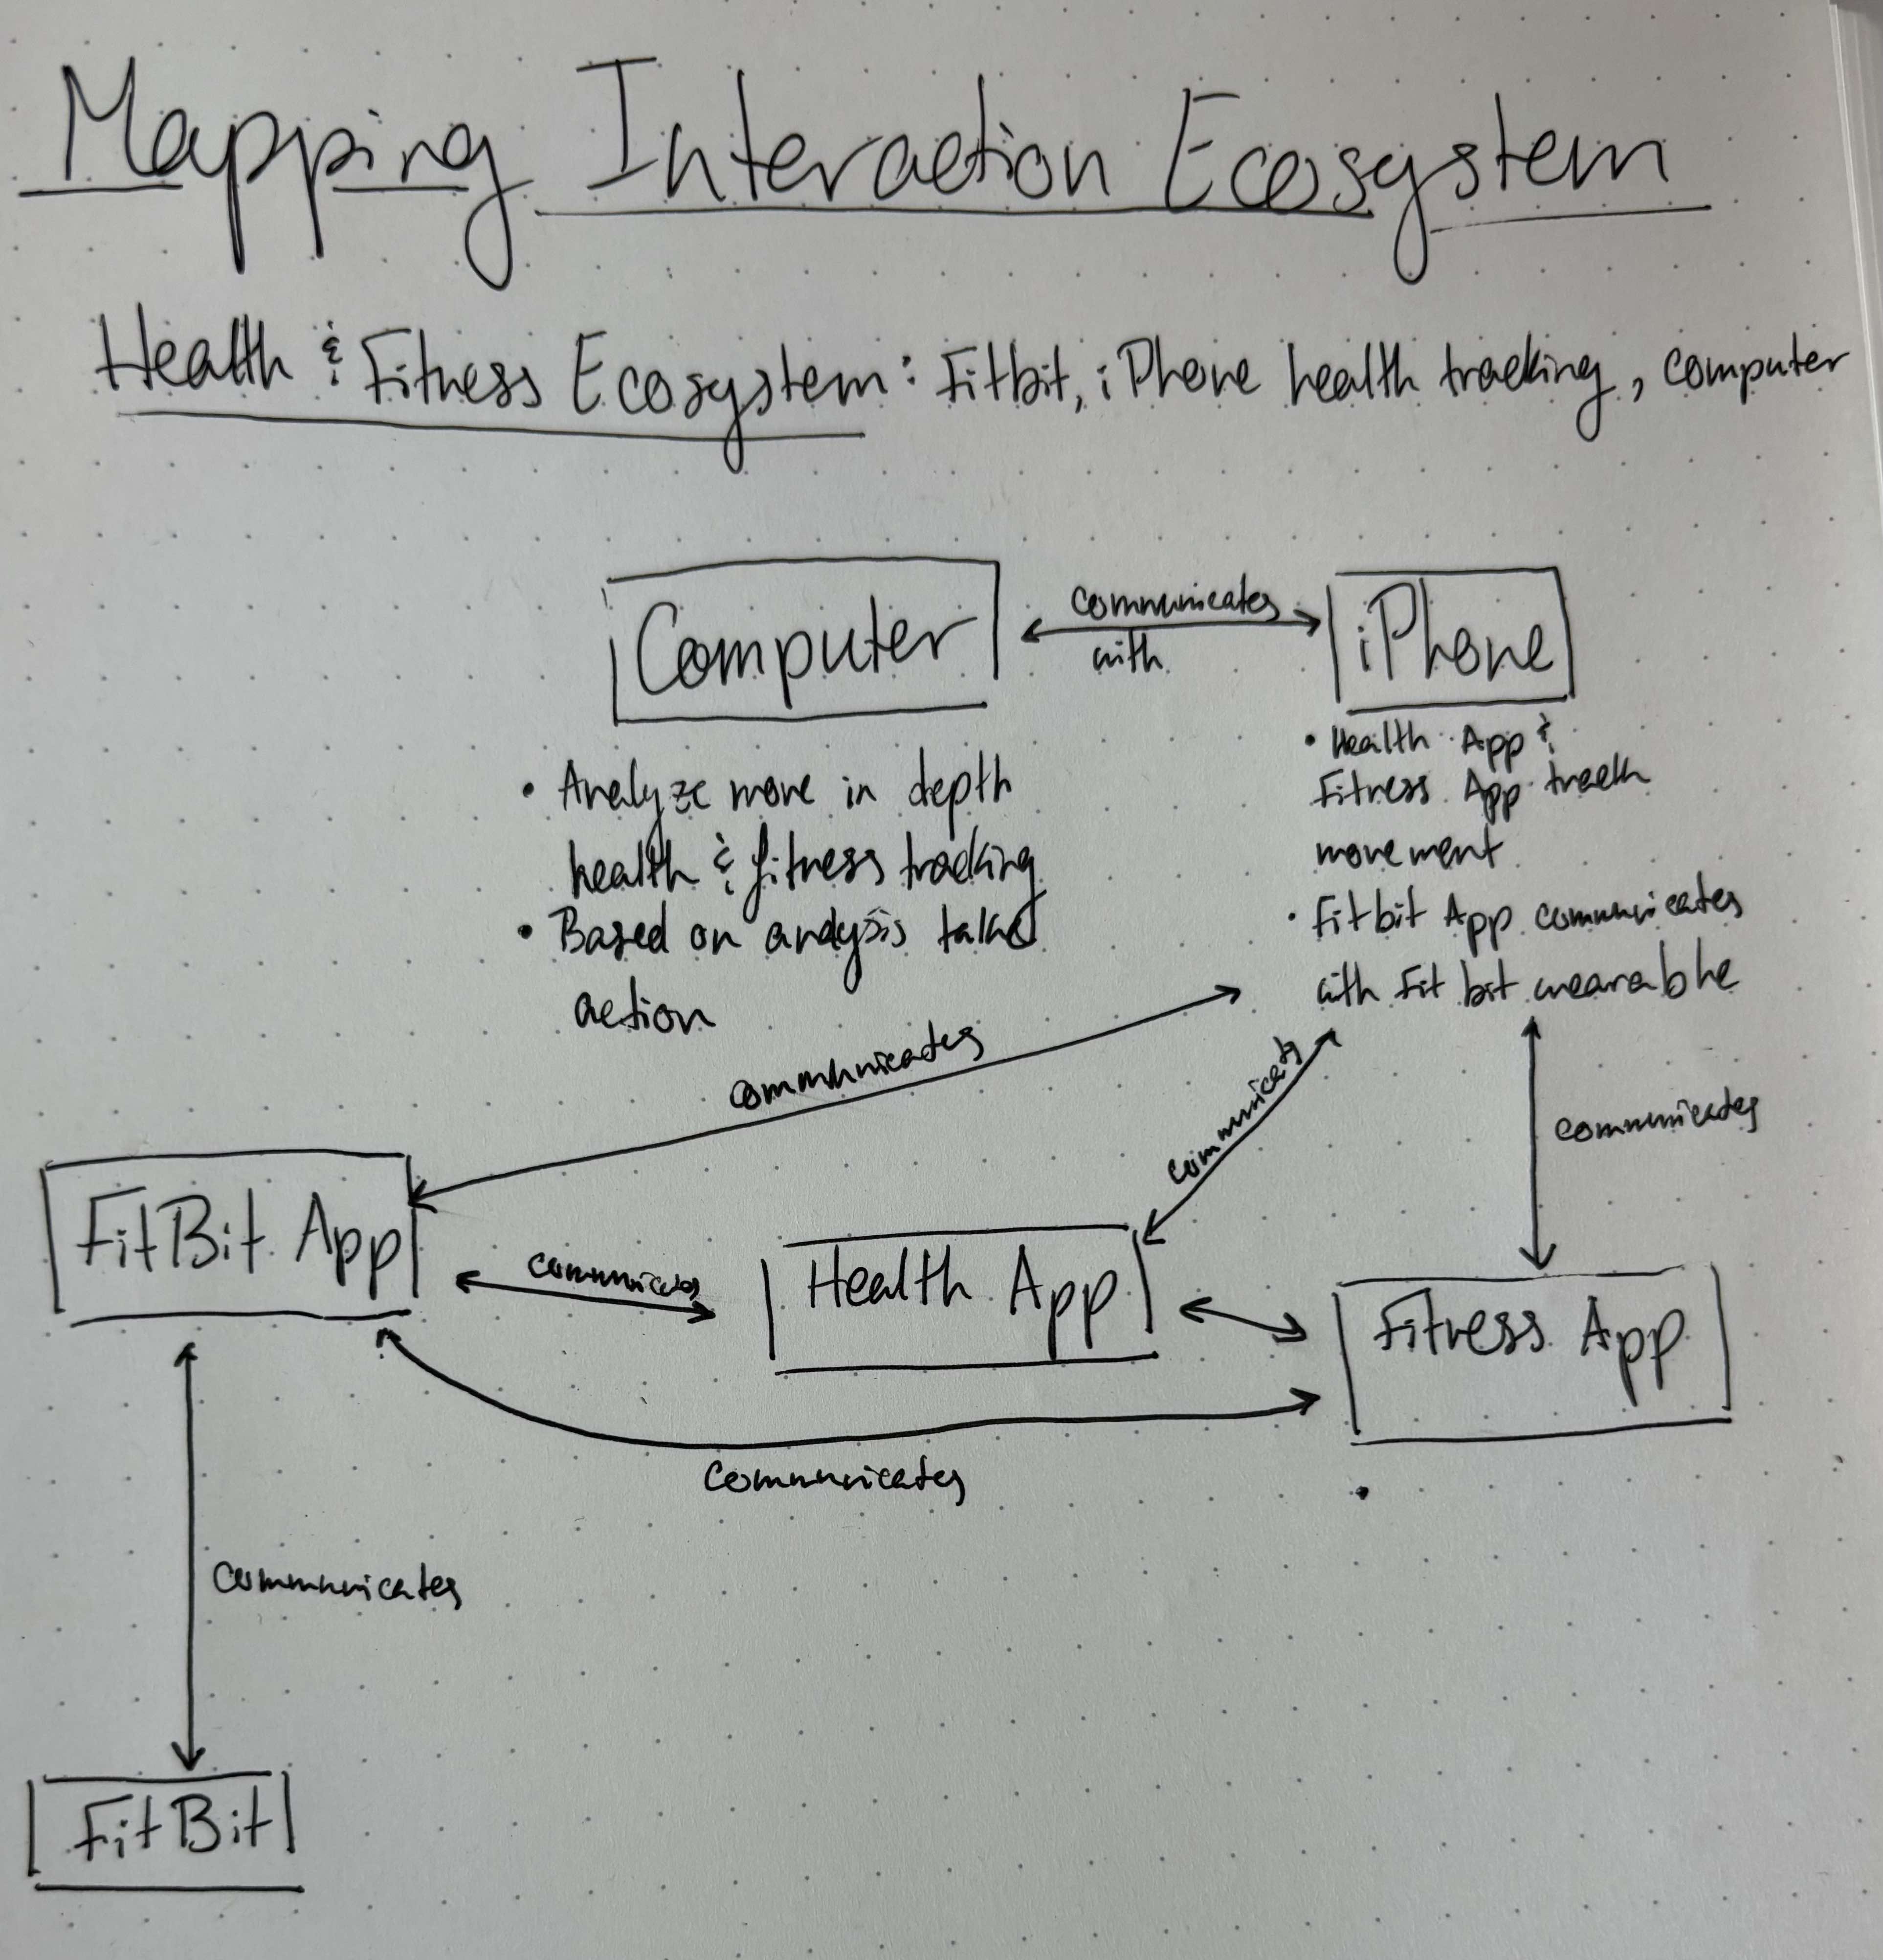 Mapping Interaction Ecosystem
Health & Fitness Ecosystem: Fitbit, iPhone health tracking, computer
Computer
communicates
with
iPhone
• Analyze more in depth
health & fitness tracking
• Based on analysis take
action
• Health App &
Fitness App track
movement
• Fitbit App communicates
with Fit bit wearable
communicates
communicates
communicates
FitBit App
communicates
Health App
Fitness App
communicates
communicates
FitBit